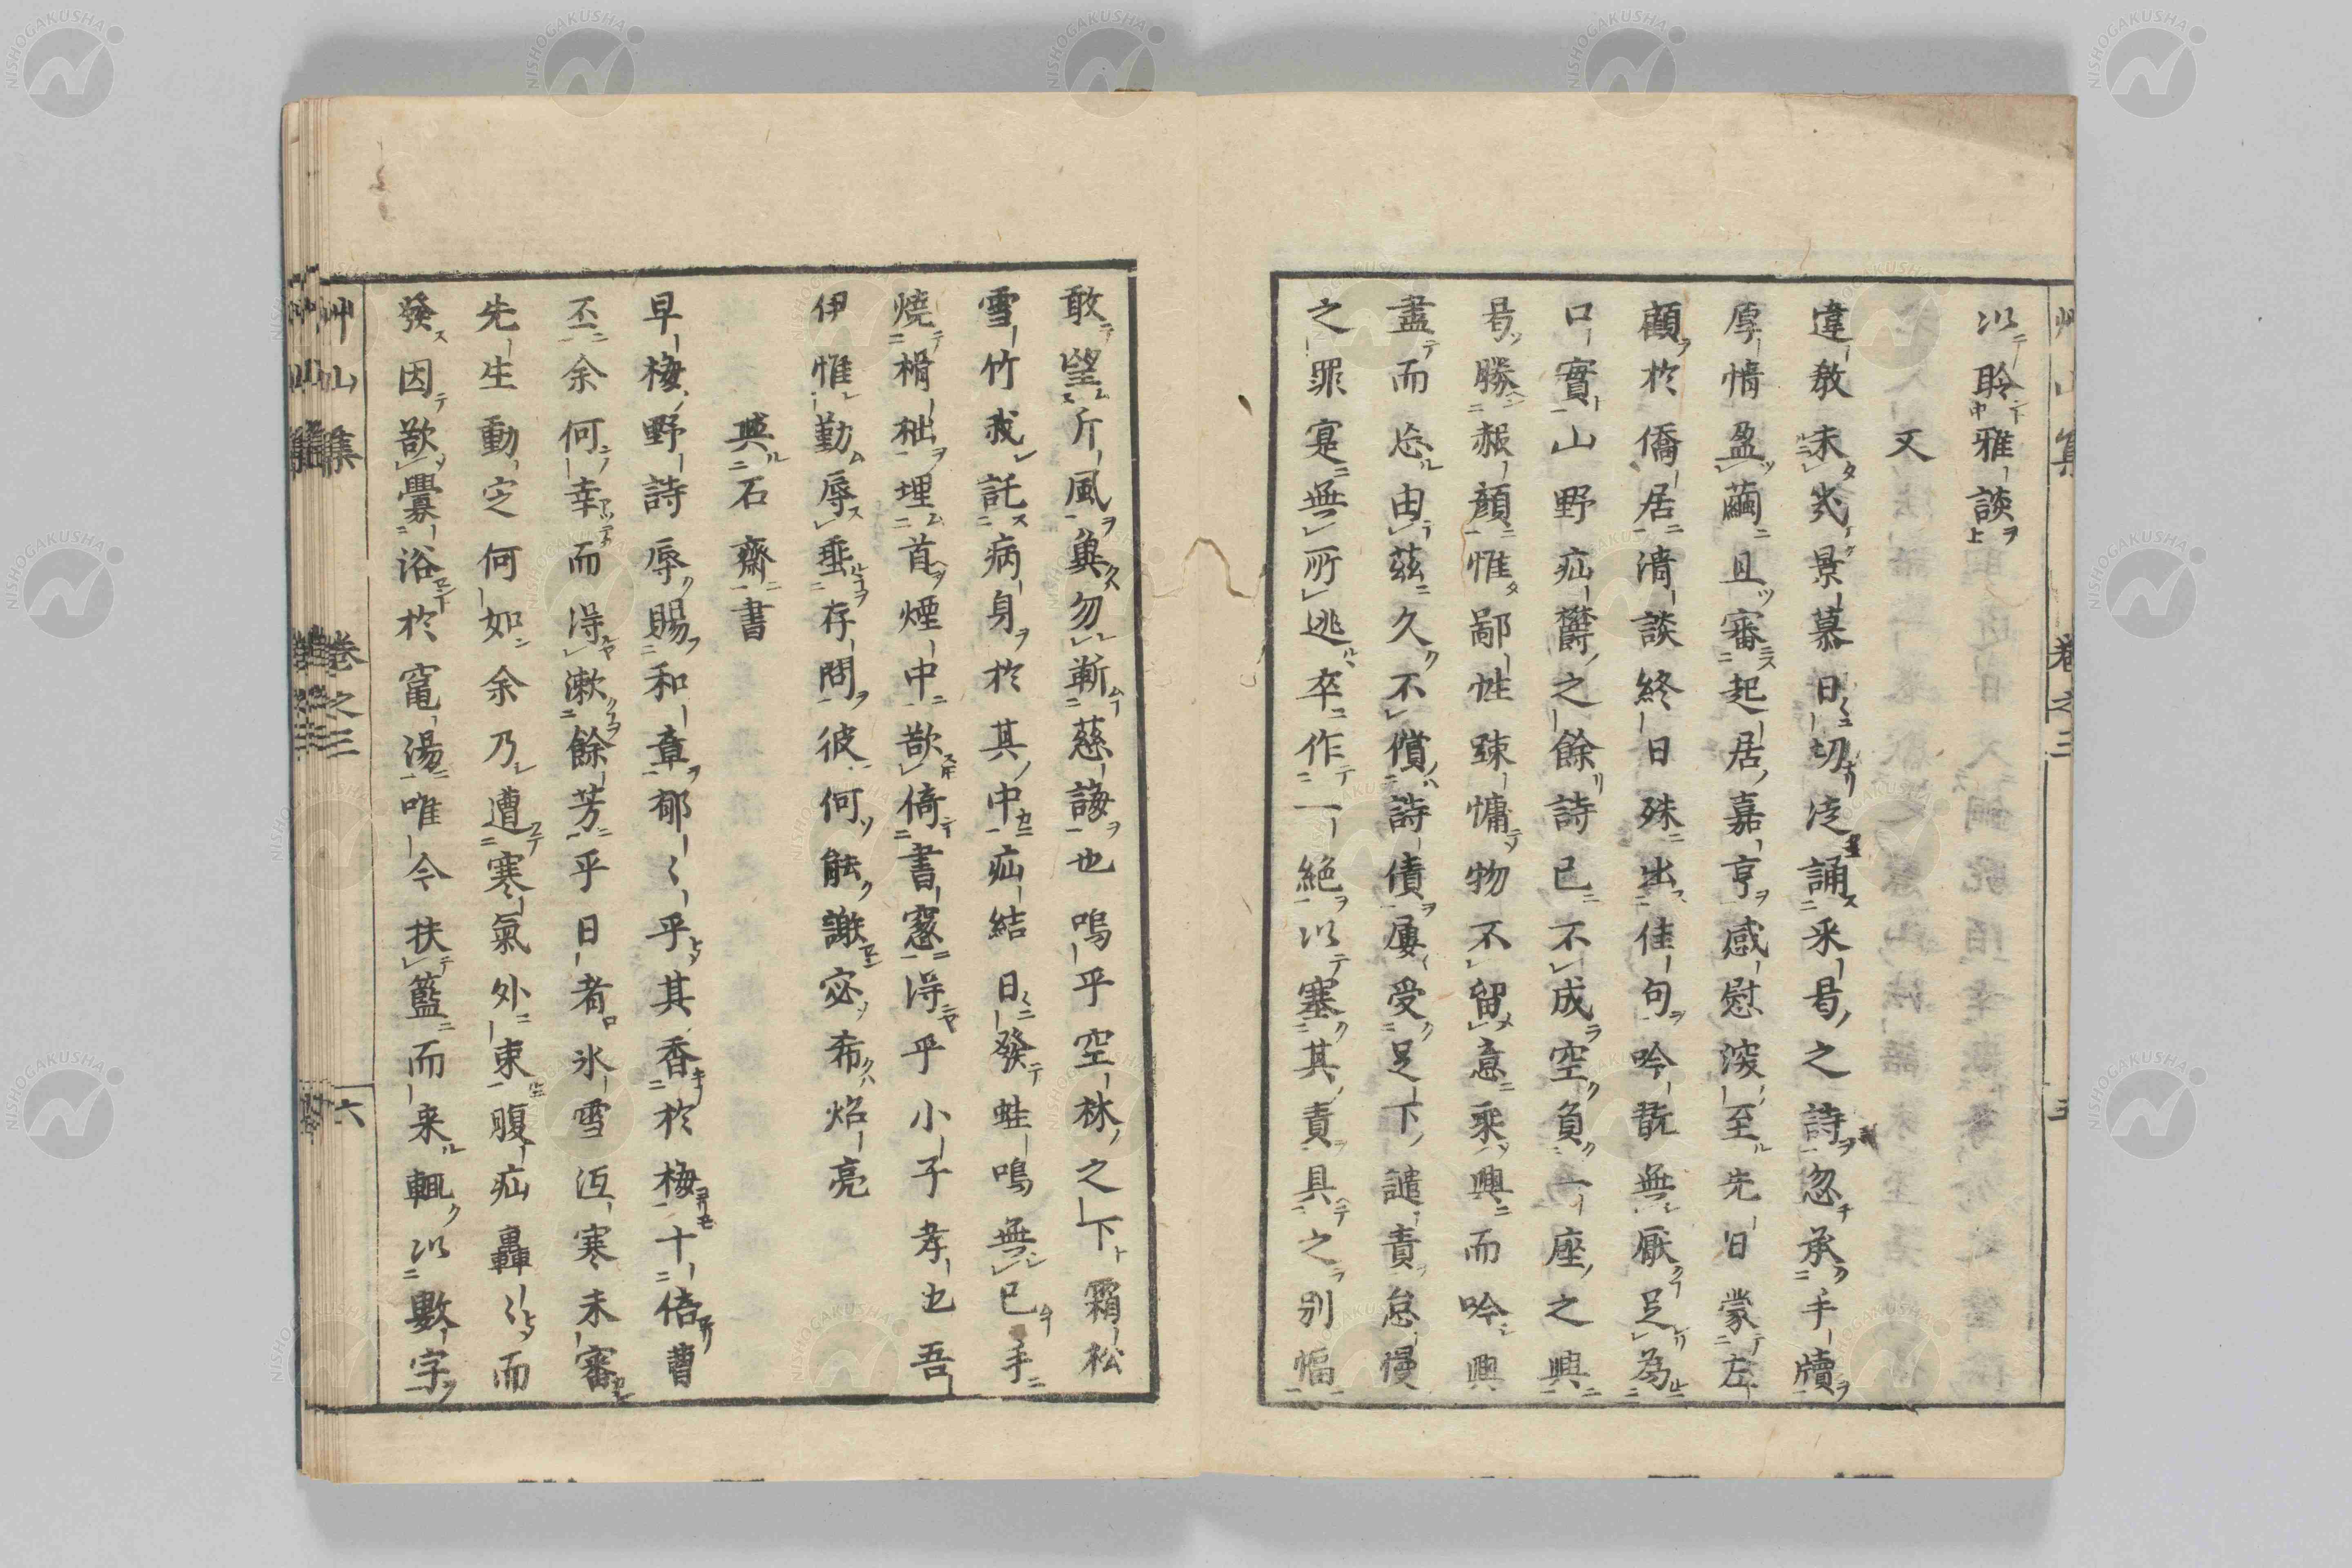 以聆雅談
又
違教未幾景慕日切泛誦采曷之詩忽承手牘
厚情盈繭且審起居嘉亨感慰深至先日蒙左
顧於僑居清談終日殊出佳句吟翫無厭足為
口實山野疝欝之餘詩已不成空負一座之興
曷勝赧顏惟鄙性疎慵物不留意乘興而吟興
盡而忘由茲久不償詩債屢受足下譴責怠慢
之罪寔無所逃卒作一絕以塞其責具之別幅
敢望斤風奠勿靳慈誨也嗚乎空林之下霜松
雪竹戕託病身於其中疝結日發蛙鳴無已手
燒榾柮埋首煙中欲倚書窓得乎小子孝也吾
伊惟勤辱垂存問彼何能謝宓布炤亮
與石齋書
早梅野詩辱賜和章郁〻乎其香於梅十倍曹
丕余何幸而得漱餘芳乎日者氷雪沍寒未審
先生動定何如余乃遭寒氣外束腹疝轟〻而
發因欲釁浴於竃湯唯今扶籃而来輒以數字
艸山集
卷之三
六